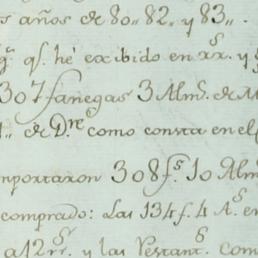 s años de 80,, 82,, y 83,, .
g.ⁿ q.ᵉ hé exibido en
307 fanegas 3 Alm.ˢ de
de D.ʳᵉ como consta en el
mportaron 308 f.ˢ 10 Alm
comprado: Las 134 f. 4 A.ˢ en
a 12 r.ˢ y las Restant.ˢ com